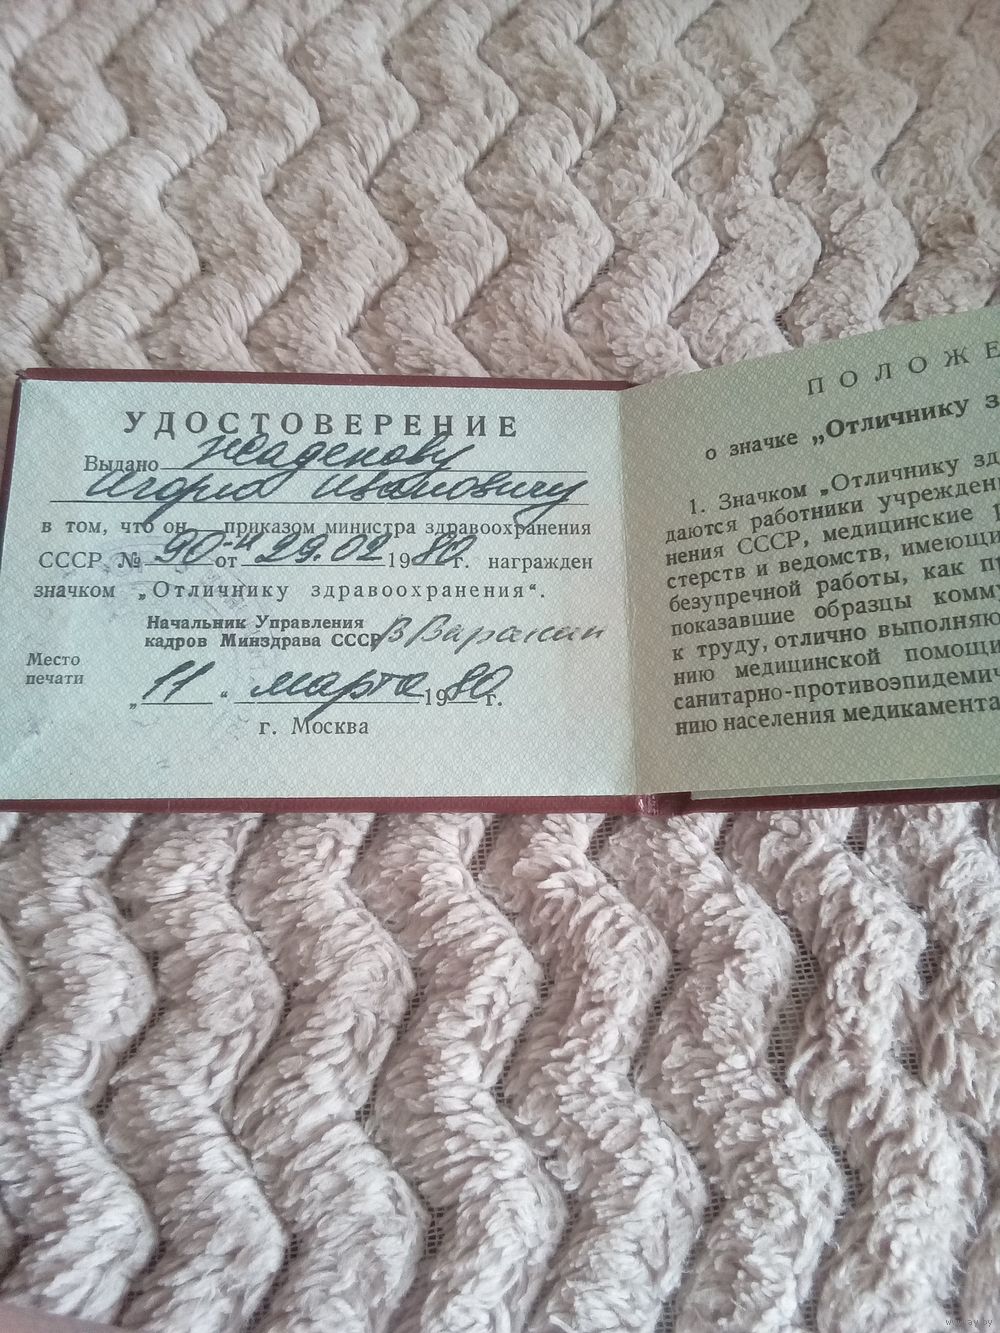 УДОСТОВЕРЕНИЕ
Выдано Жаденову
Игорю Ивановичу
в том, что он приказом министра здравоохранения
СССР № 90-н от 29.02 1980 г. награжден
значком „Отличнику здравоохранения“.
Начальник Управления
кадров Минздрава СССР
Место
печати
„11“ марта 1980 г.
г. Москва
ПОЛОЖЕ
о значке „Отличнику з
1. Значком „Отличнику зд
даются работники учрежден
нения СССР, медицинские
стерств и ведомств, имеющи
безупречной работы, как п
показавшие образцы комму
к труду, отлично выполняю
нию медицинской помощи
санитарно-противоэпидемич
нию населения медикамента
www.ay.by